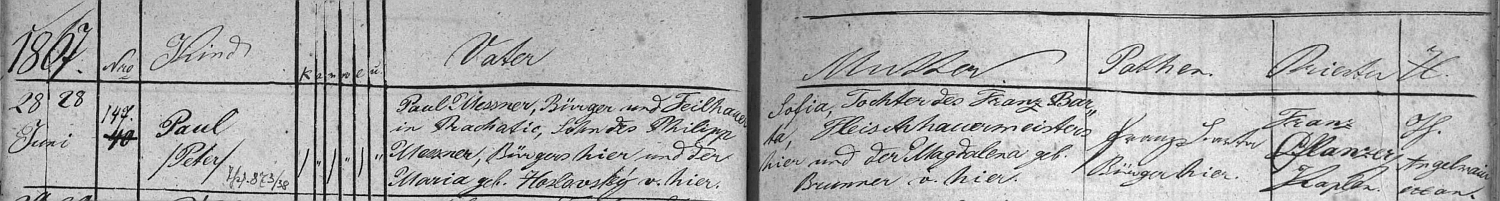 1867.
Nro
Kind
k a n w e u.
Vater
Mutter
Pathen.
Priester
H.
28 28
Juni
147.
40
Paul
/Peter/
873/38
Paul Messner, Bürger und Feilhauer
in Prachatic, Sohn des Philipp
Messner, Bürgers hier und der
Maria geb. Hoslovský v. hier.
Sofia, Tochter des Franz Bar„
ta, Fleischhauermeisters
hier und der Magdalena geb.
Brunner v. hier.
Franz Barta
Bürger hier.
Franz
Planzer
Kaplan.
H.